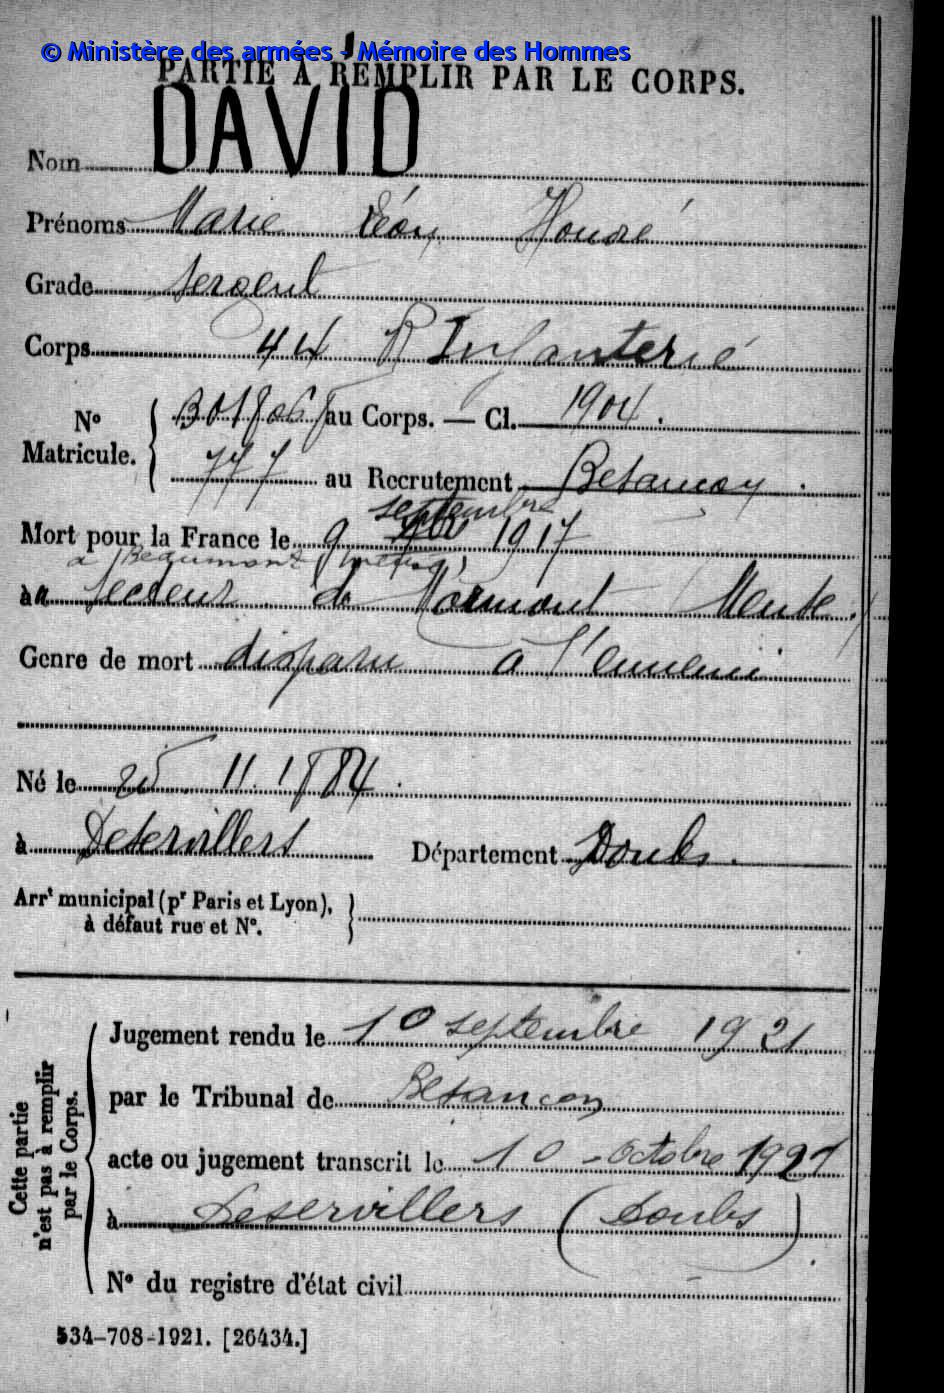 © Ministère des armées - Mémoire des Hommes
PARTIE À REMPLIR PAR LE CORPS.
Nom DAVID
Prénoms Marie Léon Honoré
Grade Sergent
Corps 44 R Infanterie
Nº Matricule. au Corps. — Cl. 1904.
777 au Recrutement Besançon.
septembre
Mort pour la France le 9 1917
a Beaumont (meuse)
à Secteur de Mormont Meuse
Genre de mort disparu a l'ennemi
Né le 25. 11. 1884.
à Deservillers Département Doubs.
Arrᵗ municipal (pʳ Paris et Lyon),
à défaut rue et Nº.
Cette partie n'est pas à remplir par le Corps.
Jugement rendu le 10 septembre 1921
par le Tribunal de Besancon
acte ou jugement transcrit le 10 - octobre 1921
à Deservillers (Doubs)
Nº du registre d'état civil -
534-708-1921. [26434.]